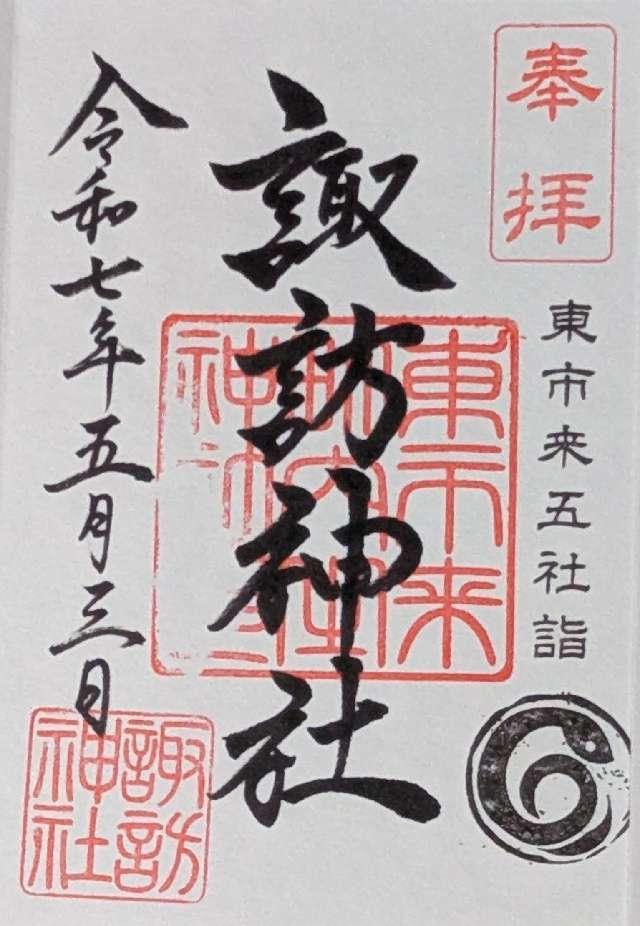 奉拝
東市来五社詣
諏訪神社
東市来
神社
令和七年五月三日
諏訪
神社